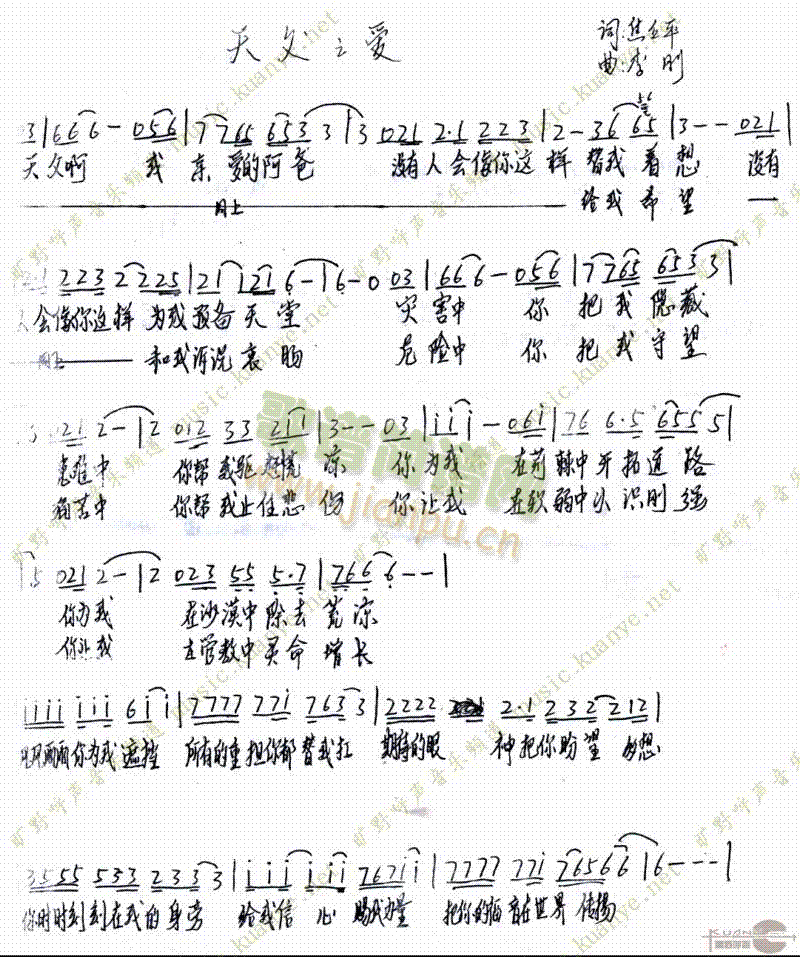 天父之爱
词:焦立平
曲:李刚
03|666-056|77656533|3 021 2·1 223|2-36 65|3--021|
天父啊 我亲爱的阿爸 没有人会像你这样替我着想 没有
同上 给我希望
223 2225|21121 6-|6-0 03|666-056|7765 6533|
人会像你这样为我预备天堂 灾害中 你把我隐藏
同上 和我诉说衷肠 危险中 你把我守望
021 2-|2 012 33 211|3--03|111-061|76 6·5 6555|
患难中 你帮我驱慌 你为我 在荆棘中开拓道路
痛苦中 你帮我止住悲伤 你让我 在软弱中认识刚强
5 021 2-|2 023 55 5·7|7666--|
你为我 在沙漠中除去荒凉
你让我 在管教中灵命增长
1111 111 611|7777 771 7633|2222 2·1 232 212|
你为我遮挡 所有的重担你都替我扛 期待的眼神把你盼望
3555 533 2333|111 111 76711|7777 771 76566|6---|
你时时刻刻在我的身旁 给我信心 赐我力量 把你的福音在世界传扬
歌谱简谱网
www.jianpu.cn
旷野呼声音乐频道 music.kuanye.net
KUANYE